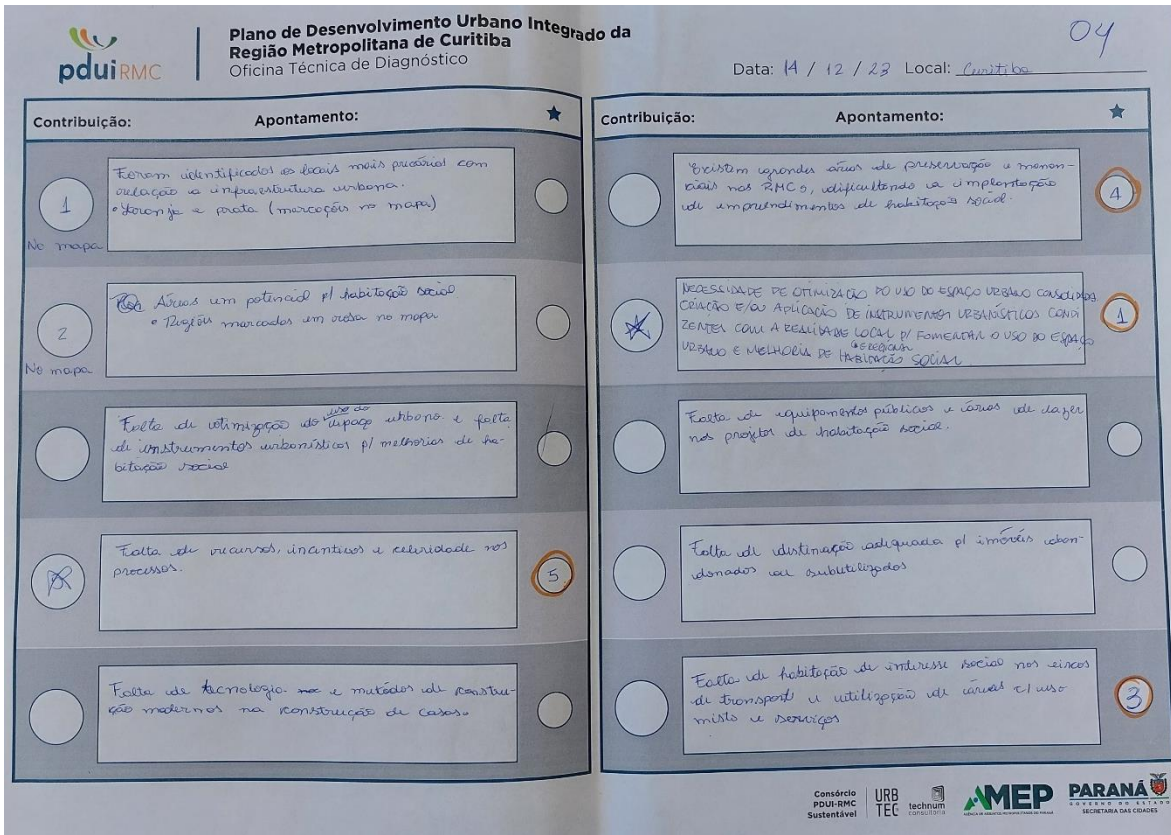 pduiRMC
Plano de Desenvolvimento Urbano Integrado da
Região Metropolitana de Curitiba
Oficina Técnica de Diagnóstico
04
Data: 14 / 12 / 23 Local: Curitiba
Contribuição: Apontamento:
1
No mapa
Foram identificados os locais mais precários com
relação a infraestrutura urbana.
• Laranja e prata (marcações no mapa)
2
No mapa
Áreas em potencial p/ habitação social
• Regiões marcados em rosa no mapa
Falta de otimização do uso do espaço urbano e falta
de instrumentos urbanísticos p/ melhorias de ha-
bitação social
Falta de recursos, incentivos e celeridade nos
processos.
5
Falta de tecnologia e métodos de constru-
ção modernos na construção de casas.
Contribuição: Apontamento:
Existem grandes áreas de preservação e manan-
ciais nas RMCs, dificultando a implantação
de empreendimentos de habitação social.
4
NECESSIDADE DE OTIMIZAÇÃO DO USO DO ESPAÇO URBANO CONSOLIDADO
CRIAÇÃO E/OU APLICAÇÃO DE INSTRUMENTOS URBANÍSTICOS CONDI
ZENTES COM A REALIDADE LOCAL P/ FOMENTAR O USO DO ESPAÇO
E REGIONAL
URBANO E MELHORIA DE HABITAÇÃO SOCIAL
1
Falta de equipamentos públicos e áreas de lazer
nos projetos de habitação social.
Falta de destinação adequada p/ imóveis aban-
donados ou subutilizados
Falta de habitação de interesse social nos eixos
de transport e utilização de áreas c/ uso
misto e serviços
3
Consórcio
PDUI-RMC
Sustentável
URB
TEC
technum
consultoria
AMEP
PARANÁ
GOVERNO DO ESTADO
SECRETARIA DAS CIDADES